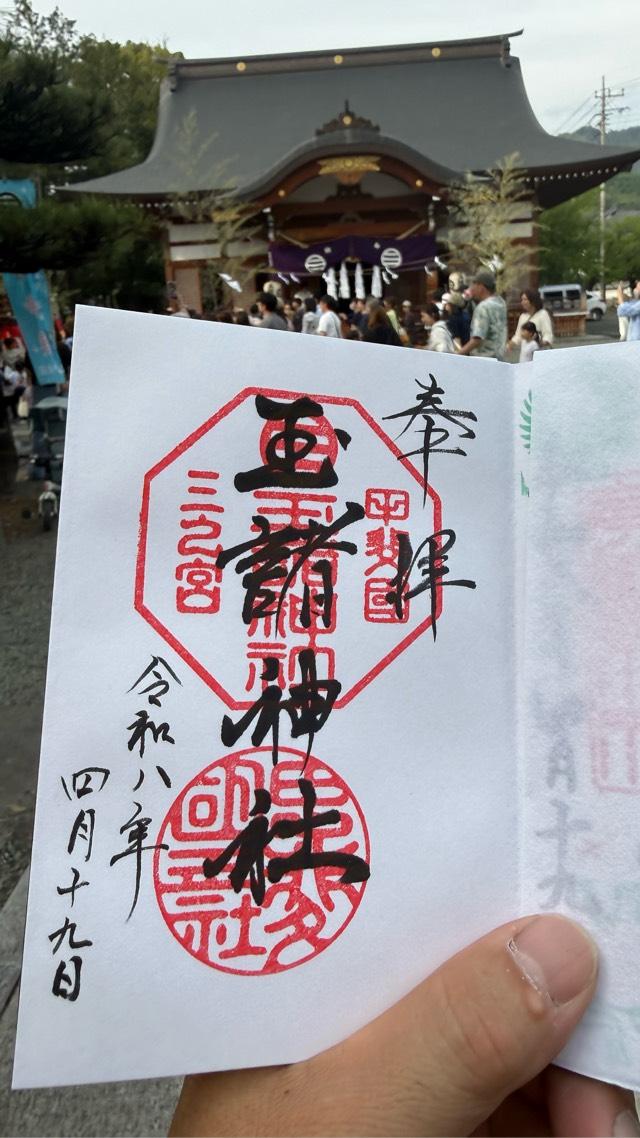 奉拝
甲斐國
玉諸神社
玉諸神社
三之宮
令和八年
四月十九日
月十九